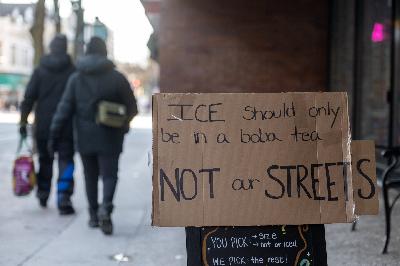 ICE should only
be in a boba tea
NOT ar STREETS
YOU PICK: → SIZE
→ NOT or ICED
WE PICK: the rest!